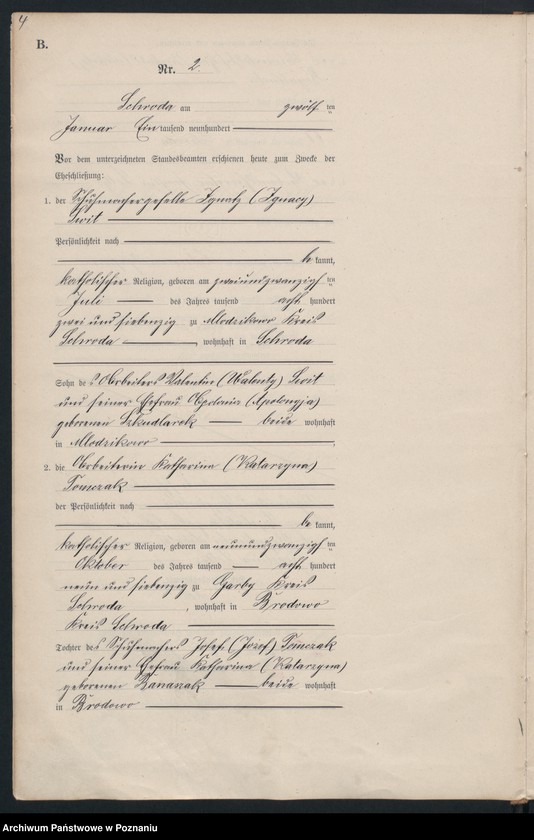 4
B.
Nr. 2.
Schroda am zwölf ten
Januar Ein tausend neunhundert
Vor dem unterzeichneten Standesbeamten erschienen heute zum Zwecke der
Eheschließung:
1. der Schuhmachergeselle Ignatz (Ignacy)
Persönlichkeit nach
be kannt,
katholischer Religion, geboren am zweiundzwanzigs ten
Juli des Jahres tausend acht hundert
zwei und siebenzig zu Mlodzikowo Kreis
Schroda, wohnhaft in Schroda
Sohn des Arbeiters Valentin (Walenty)
und seiner Ehefrau Apolonia (Apolonyja)
geborenen Szkudlarek beide wohnhaft
in Mlodzikowo.
2. die Arbeiterin Katharina (Katarzyna)
Tomczak
der Persönlichkeit nach
be kannt,
katholischer Religion, geboren am neunundzwanzigs ten
Oktober des Jahres tausend acht hundert
neun und siebenzig zu Garby Kreis
Schroda, wohnhaft in Brodowo
Kreis Schroda
Tochter des Schuhmachers Josef (Józef) Tomczak
und seiner Ehefrau Katharina (Katarzyna)
geborenen Banaszak beide wohnhaft
in Brodowo
Archiwum Państwowe w Poznaniu